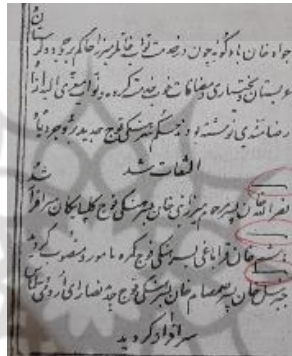 جواد خان ماکوئی چون در خدمت نواب خانلر میرزا حاکم بروجرد و لر
ستان و بختیاری و مضافات خوب خدمت کرده و نواب معزی الیه از او
رضامندی نوشته بود بحکم سرهنگی فوج جدید بروجرد باو
التفات شد
نصرالله خان پسر میرزا نبی خان بسرهنگی فوج گلپایگان سرافراز شد
شیر خان قراباغی بسرهنگی فوج کره مامور و منصوب گردید
جبرئیل خان پسر صمصام خان بسرهنگی فوج جدید نصارای ارومی و سلماس
سرافراز گردید